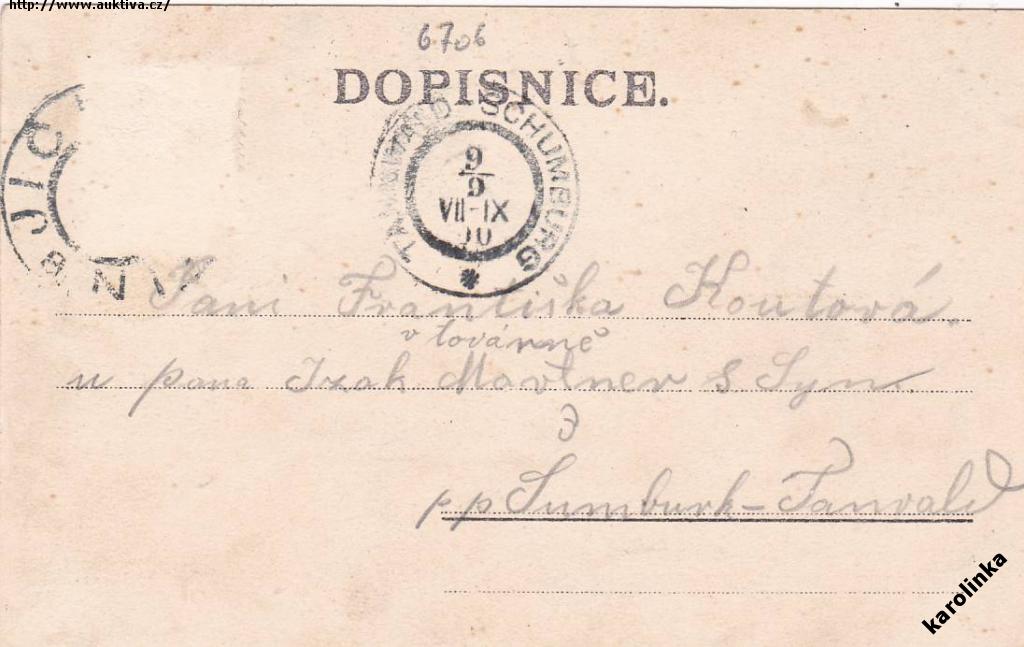 http://www.auktiva.cz/
6706
DOPISNICE.
TANNWALD SCHUMBURG
9
9
VII-IX
00
JIC
Paní Františka Koutová.
v továrně
u pana Izak Mautner & Syn.
pp Šumburk-Tanvald
karolinka